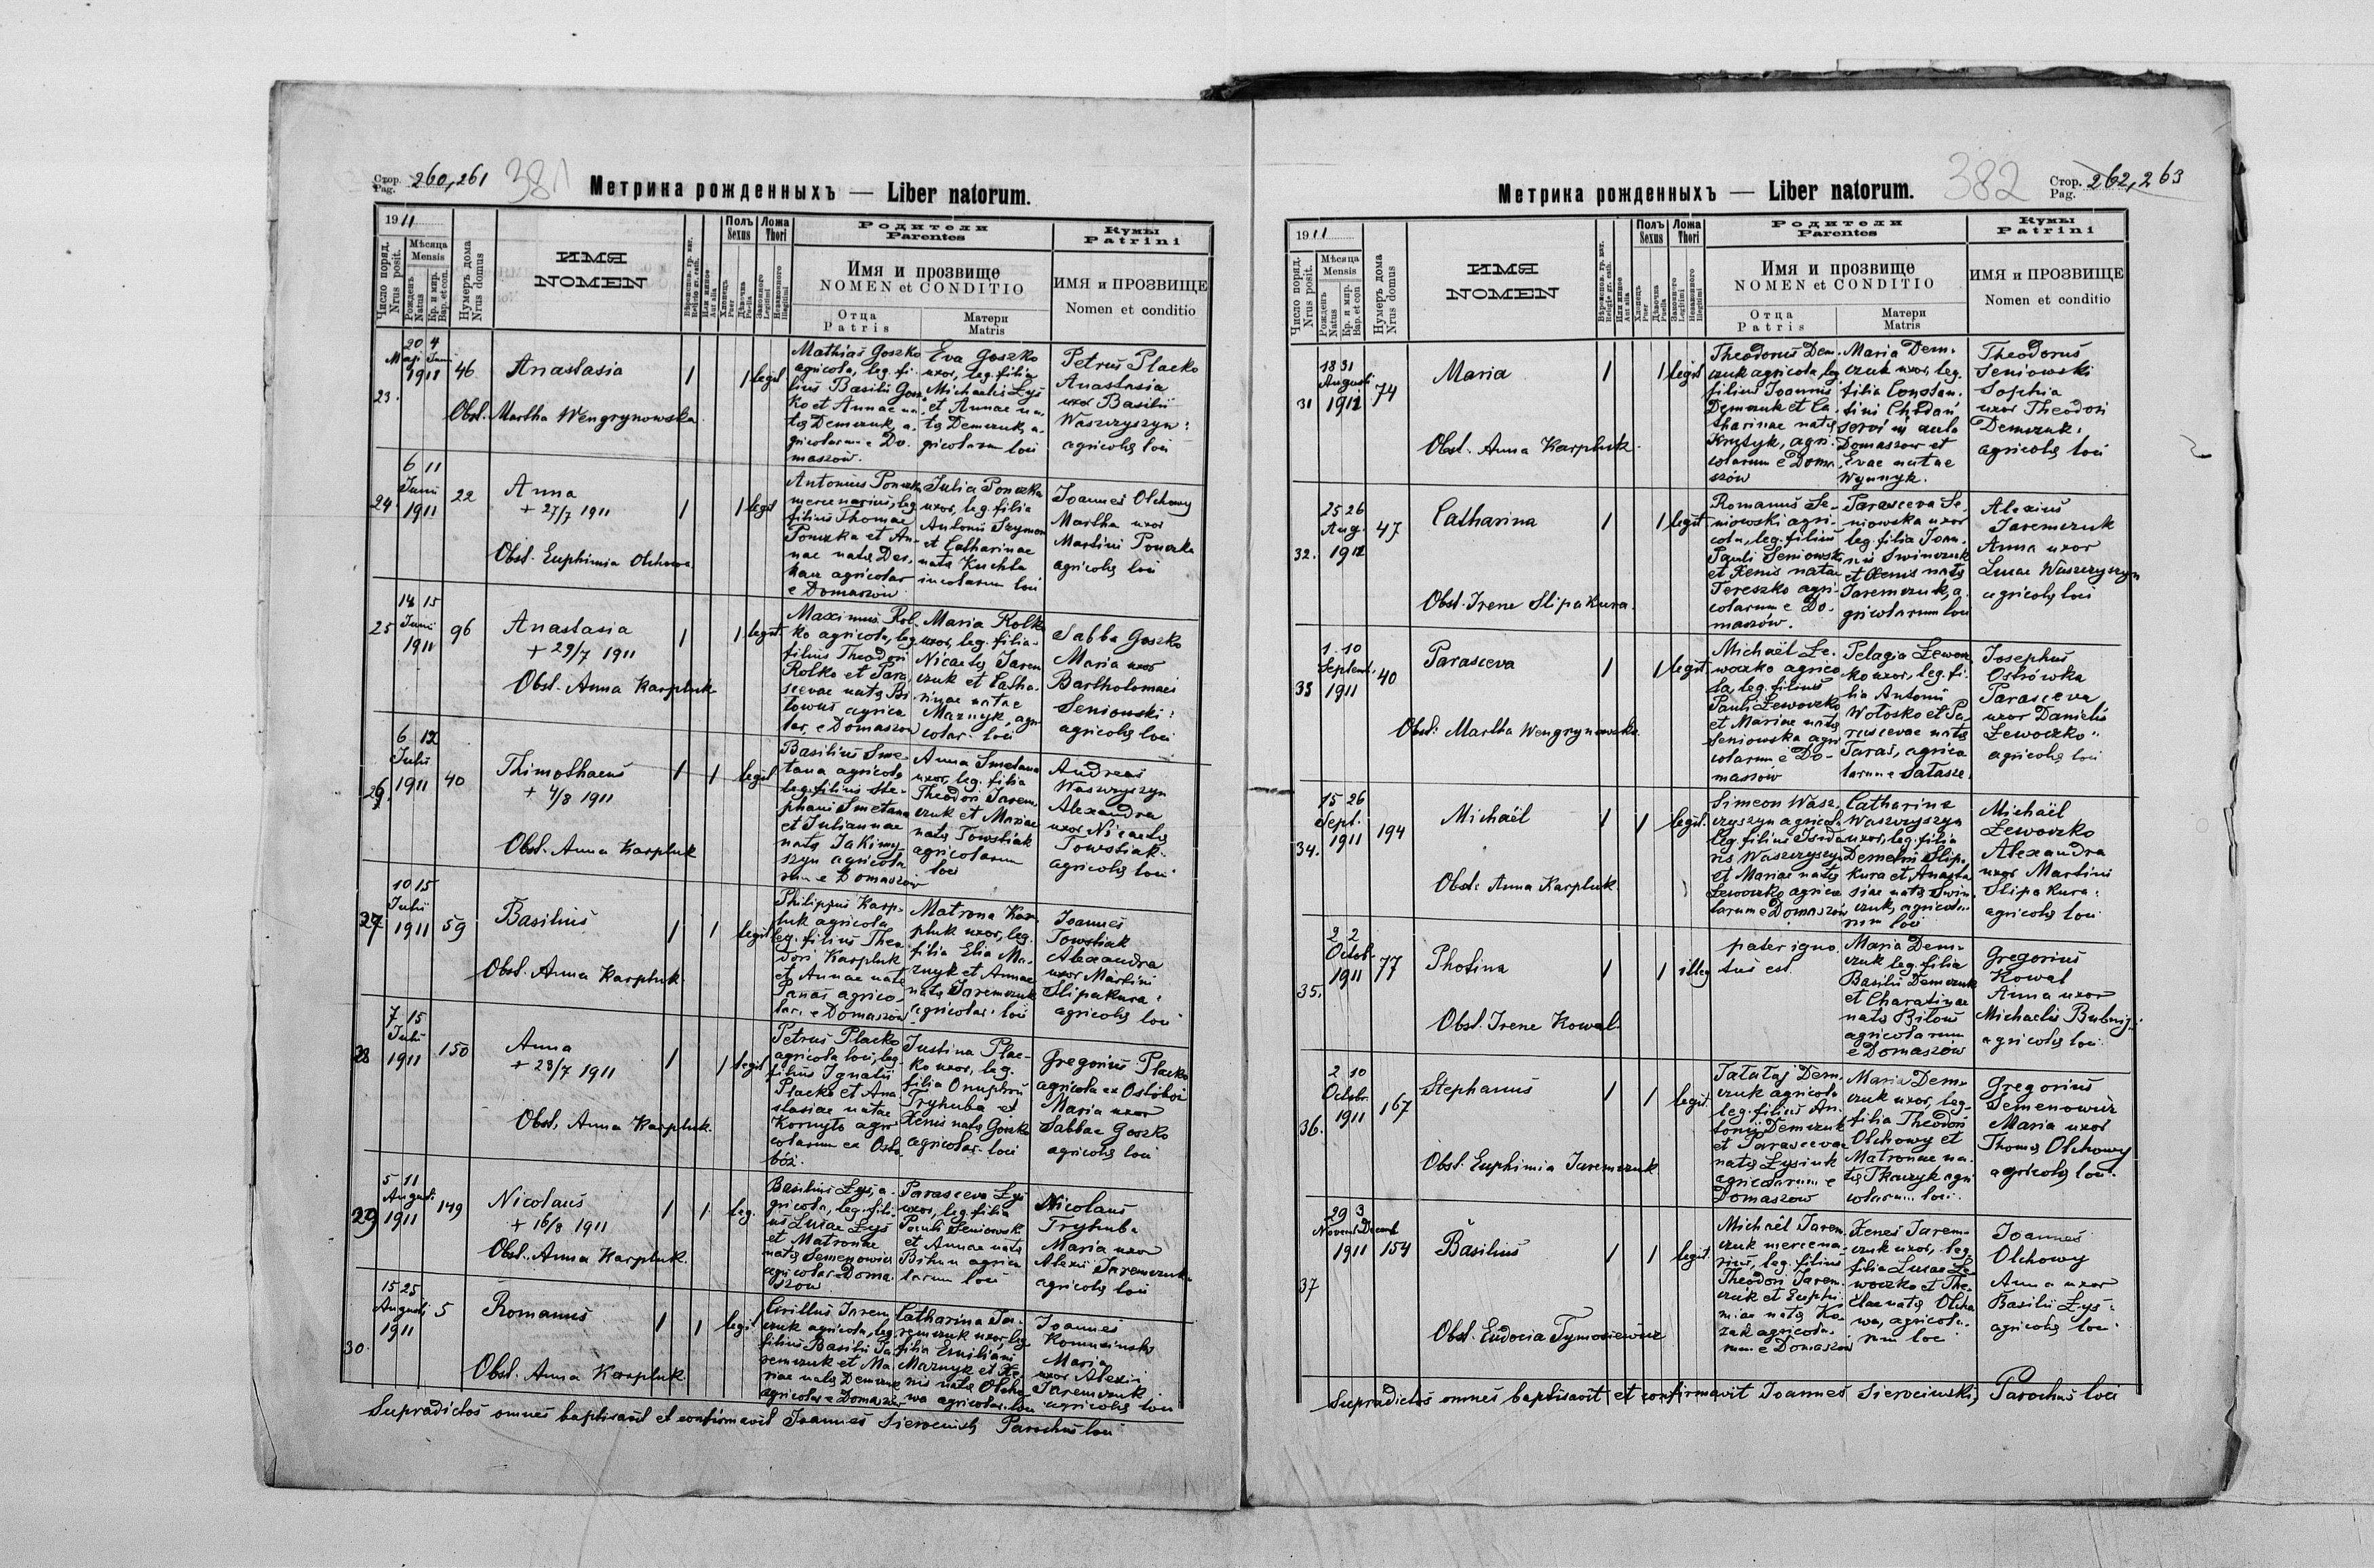 Стор. Pag. 260, 261
381
Метрика рожденныхъ — Liber natorum.
1911
Число поряд. Nrus posit.
Мѣсяца Mensis
Рожденъ Natus
Кр. и мир. Bap. et con.
Нумеръ дома Nrus domus
ИМЯ
NOMEN
Полъ Sexus
Хлопецъ Puer
Дѣвочка Puella
Ложа Thori
Законного Legitimi
Незаконного Illegitimi
Родители
Parentes
Имя и прозвище
NOMEN et CONDITIO
Отца Patris
Матери Matris
Кумы
Patrini
ИМЯ и ПРОЗВИЩЕ
Nomen et conditio
23.
20 4
Maji Junii
1911
46
Anastasia
1 1 legit
Obst. Martha Wengrynowska
Mathias Goszko
agricola, leg. fi-
lius Basilii Gosz
ko et Annae na-
tae Demczuk, a-
gricolarum e Do-
maszów.
Eva Goszko
uxor, leg. filia
Michaelis Łyś
et Annae na-
tae Demczuk, a-
gricolarum loci
Petrus Placko
Anastasia
uxor Basilii
Waszczyszyn:
agricolae loci
24.
6 11
Junii
1911
22
Anna
+ 27/7 1911
1 1 legit
Obst. Euphimia Olchowa
Antonius Ponczka
mercenarius, leg.
filius Thomae
Ponczka et An-
nae natae Der-
kacz agricolar
e Domaszow
Julia Ponczka
uxor, leg. filia
Antonii Szymon
et Catharinae
natae Kuchta
incolarum loci
Joannes Olchowy
Martha uxor
Martini Ponczka
agricolae loci
25
14 15
Junii
1911
96
Anastasia
+ 29/7 1911
1 1 legit.
Obst. Anna Karpluk
Maximus Rol-
ko agricola, leg
filius Theodori
Rolko et Para
scevae natae Bi
lowus agrico
lar. e Domaszow
Maria Rolko
uxor, leg. filia
Nicaetae Jarem
czuk et Catha-
rinae natae
Maznyk, agri
colar. loci
Sabba Goszko
Maria uxor
Bartholomaei
Seniowski:
agricolae loci
26.
6 12
Julii
1911
40
Thimothaeus
+ 4/8 1911
1 1 legit
Obst. Anna Karpluk
Basilius Sme-
tana agricola
leg. filius Ste-
phani Smetana
et Juliannae
natae Jakimy-
szyn agricola
rum e Domaszów
Anna Smetana
uxor, leg. filia
Theodori Jarem
czuk et Mariae
natae Towstiak
agricolarum
loci
Andreas
Waszczyszyn
Alexandra
uxor Nicaetae
Towstiak.
agricolae loci
27
10 15
Julii
1911
59
Basilius
1 1 legit
Obst. Anna Karpluk.
Philippus Karp-
luk agricola
leg. filius Theo
dori Karpluk
et Annae nate
Panas agrico-
lar. e Domaszów
Matrona Kar
pluk uxor, leg.
filia Elia Ma-
znyk et Annae
natae Jaremczuk
agricolar. loci
Joannes
Towstiak
Alexandra
uxor Martini
Slipakura:
agricolae loci
28
7 15
Julii
1911
150
Anna
+ 23/7 1911
1 1 legit
Obst. Anna Karpluk.
Petrus Placko
agricola loci, leg
filius Ignatii
Placko et Ana
stasiae natae
Kornyło agri
colarum ex Osto
bóż.
Justina Plac-
ko uxor, leg.
filia Onuphrii
Tryhuba et
Xenis natae Goszko
agricolar. loci
Gregorius Placko
agricola ex Ostoboż
Maria uxor
Sabbae Goszko
agricolae loci
29
5 11
August.
1911
149
Nicolaus
+ 16/8 1911
1 1 leg.
Obst. Anna Karpluk.
Basilius Łyś, a-
gricola, leg. fili-
us Lucae Łyś
et Matronae
natae Semenowicz
agricolar. e Doma-
szow
Parasceva Łyś
uxor, leg. filia
Pauli Seniowsk
et Annae natae
Bihun agrico
larum loci
Nicolaus
Tryhuba
Maria uxor
Alexii Jaremczuk
agricolae loci
30.
15 25
Augusti
1911
5
Romanus
1 1 legit
Obst. Anna Karpluk.
Cirillus Jarem
czuk agricola, leg.
filius Basilii Ja
remczuk et Ma
riae natae Demczuk
agricolae e Domaszów
Catharina Ja-
remczuk uxor, leg
filia Emiliani
Maznyk et Xe-
nis natae Olcho
wa agricolar. loci
Joannes
Maria
uxor Alexii
Jaremczuk
agricolae loci
Supradictos omnes baptisavit et confirmavit Joannes Sierociński Parochus loci
382
Стор. Pag. 262, 263
Метрика рожденныхъ — Liber natorum.
1911
Число поряд. Nrus posit.
Мѣсяца Mensis
Рожденъ Natus
Кр. и мир. Bap. et con
Нумеръ дома Nrus domus
ИМЯ
NOMEN
Полъ Sexus
Хлопецъ Puer
Дѣвочка Puella
Ложа Thori
Законного Legitimi
Незаконного Illegitimi
Родители
Parentes
Имя и прозвище
NOMEN et CONDITIO
Отца Patris
Матери Matris
Кумы
Patrini
ИМЯ и ПРОЗВИЩЕ
Nomen et conditio
31
18 31
Augusti
1911
74
Maria
1 1 legit
Obst. Anna Karpluk.
Theodorus Dem-
czuk agricola, leg
filius Joannis
Demczuk et Ca-
tharinae natae
Krzyk, agri-
colarum e Doma
szów
Maria Dem-
czuk uxor, leg.
filia Constan-
tini Chodań
servi in aula
Domaszow et
Evae natae
Wynnyk.
Theodorus
Seniowski
Sophia
uxor Theodori
Demczuk:
agricolae loci
32.
25 26
Aug.
1911
47
Catharina
1 1 legit
Obst. Irene Slipakura.
Romanus Se-
niowski agri-
cola, leg. filius
Pauli Seniowski
et Xenis natae
Tereszko agri-
colarum e Do-
maszów.
Parasceva Se-
niowska uxor
leg. filia Joan-
nis Swinczuk
et Xenis natae
Jaremczuk, a-
gricolarum loci
Alexius
Jaremczuk
Anna uxor
Lucae Waszczyszyn
agricolae loci
33
1 10
Septemb.
1911
40
Parasceva
1 1 legit
Obst. Martha Wengrynowska
Michaël Łe-
woczko agrico
la, leg. filius
Pauli Łewoczko
et Mariae natae
Seniowska agri
colarum e Do-
maszów
Pelagia Łewocz
ko uxor, leg. fi-
lia Antonii
Wołosko et Pa-
rascevae natae
Taras, agrico
larum e Sałasze.
Josephus
Ostrówka
Parasceva
uxor Danielis
Łewoczko
agricolae loci
34.
15 26
Sept.
1911
194
Michaël
1 1 legit.
Obst. Anna Karpluk
Simeon Wasz-
czyszyn agricola
leg. filius Isido
ris Waszczyszyn
et Mariae natae
Łewoczko agrico
larum e Domaszów
Catharina
Waszczyszyn
uxor, leg. filia
Demetri Slipa-
kura et Anasta
siae natae Swin
czuk, agricola-
rum loci
Michaël
Łewoczko
Alexandra
uxor Martini
Slipakura:
agricolae loci
35.
2 2
Octob.
1911
77
Photina
1 1 illeg
Obst. Irene Kowal.
pater igno-
tus est.
Maria Dem-
czuk leg. filia
Basilii Demczuk
et Charatinae
natae Bilous
agricolarum
e Domaszów
Gregorius
Kowal
Anna uxor
Michaelis
agricolae loci.
36.
2 10
Octobr.
1911
167
Stephanus
1 1 legit.
Obst. Euphimia Jaremczuk
Tatałaj Dem-
czuk agricola
leg. filius An-
tonii Demczuk
et Parascevae
natae Łysiuk
agricolarum e
Domaszow
Maria Dem-
czuk uxor, leg-
filia Theodori
Olchowy et
Matronae na-
tae Tkaczyk agri
colarum loci.
Gregorius
Semenowicz
Maria uxor
Thomae Olchowy
agricolae loci.
37
29 3
Novemb. Decemb
1911
154
Basilius
1 1 legit.
Obst. Eudocia Tymosiewicz
Michaël Jarem
czuk mercena-
rius, leg. filius
Theodori Jarem-
czuk et Euphi-
miae natae Ko-
zak agricola-
rum e Domaszow
Xenes Jarem-
czuk uxor, leg.
filia Lucae Łe-
woczko et The-
clae natae Olcho
wa, agricola-
rum loci
Joannes
Olchowy
Anna uxor
Basilii Łyś:
agricolae loci
Supradictos omnes baptisavit et confirmavit Joannes Sierociński, Parochus loci